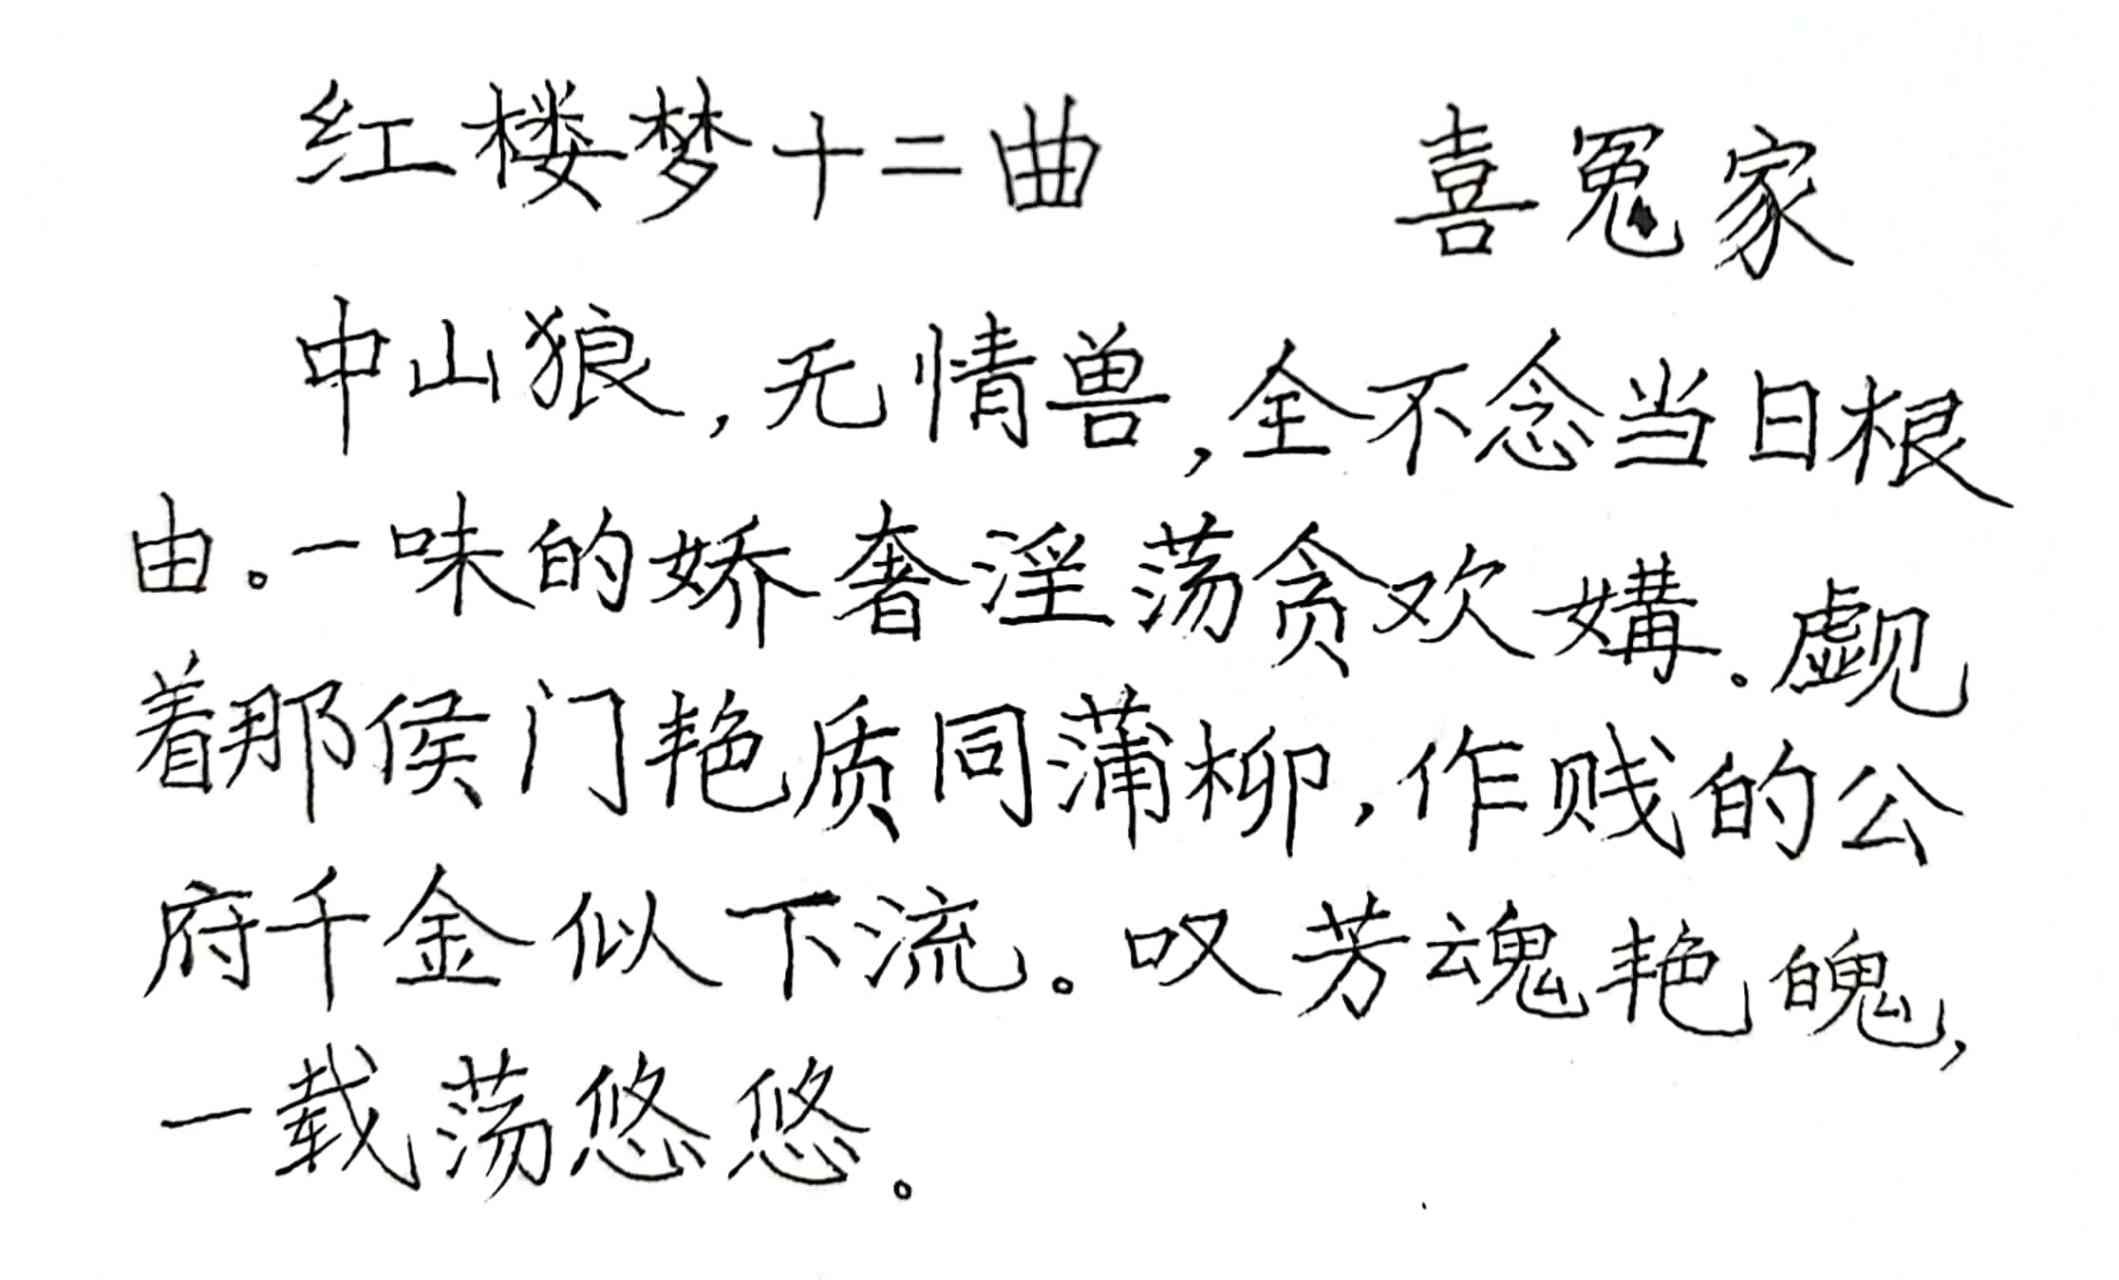 红楼梦十二曲 喜冤家
中山狼,无情兽,全不念当日根
由。一味的娇奢淫荡贪欢媾。觑
着那侯门艳质同蒲柳,作贱的公
府千金似下流。叹芳魂艳魄,
一载荡悠悠。